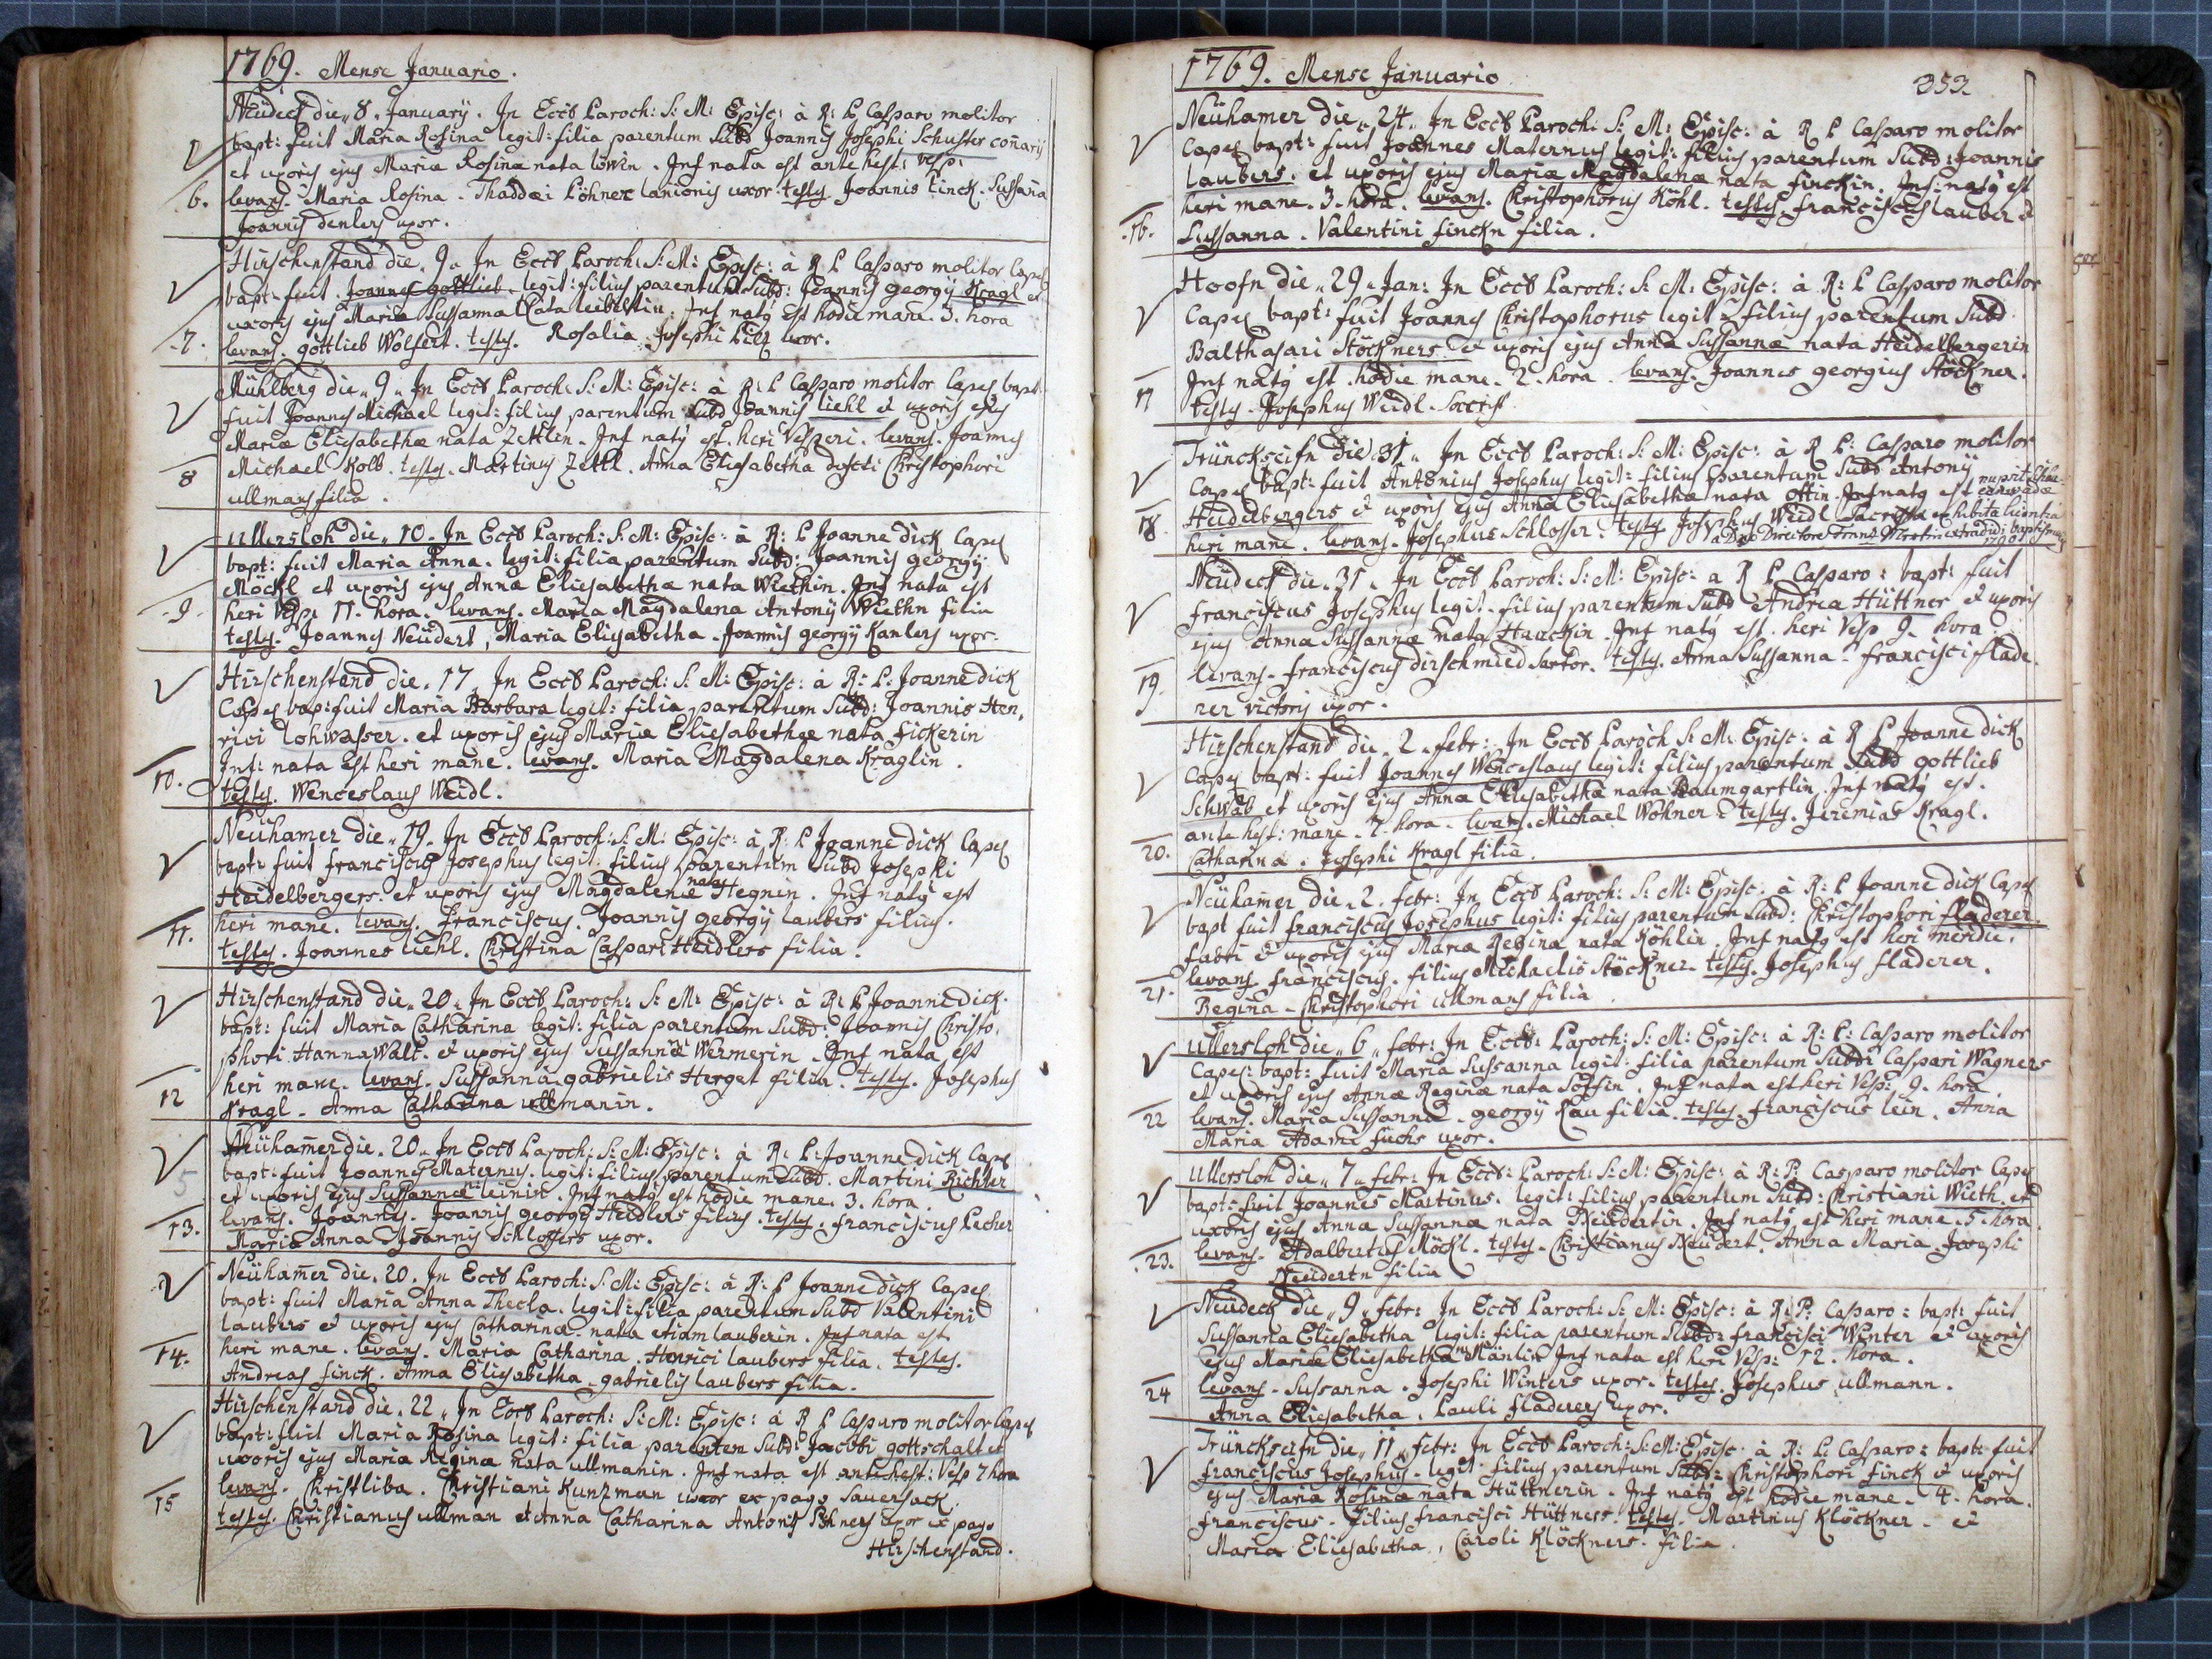 1769. Mense Januario.
Neüdeck die 8. Januarÿ. In Eccl Paroch: S: M: Episc: à R: P Casparo molitor
bapt: fuit Maria Rosina legit: filia parentum Subd Joannis Josephi Schuster
et uxoris ejus Mariæ Rosinæ nata löwin. Inf nata est ante hest: vesp:
6. levans. Maria Rosina. Thaddæi Löhner lanionis uxor. testes Joannis Linck. Sussana
Joannis denlers uxor.
Hirschenstand die. 9. In Eccl Paroch: S: M: Episc: à R P Casparo molitor Capel
bapt: fuit. Joannes gottlieb legit: filius parentum Subd: Joannis georgÿ Kragl et
uxoris ejus Mariæ Sussanna Nata leibeltin. Inf natq est hodie mane. 3. hora
.7. levans. gottlieb Wölfert. testes. Rosalia Josephi Piltz uxor.
Mühlberg die. 9. In Eccl Paroch: S: M: Episc: à R: P Casparo molitor Capel bapt:
fuit Joannes Michael legit: filius parentum Subd Joannis liehl et uxoris ejus
Mariæ Eliesabethæ nata Zettlin. Inf natq est. heri Vesperi. levans. Joannes
8 Michael Kolb. testes. Martinus Zettl. Anna Eliesabetha Christophori
ullmans filia.
ullersloh die. 10. In Eccl Paroch: S: M: Episc: à R: P Joanne dick Capel
bapt: fuit Maria Anna. legit: filia parentum Subd: Joannis georgÿ
Möckl et uxoris ejus Annæ Eliesabethæ nata Wiethin. Inf nata est
.9. heri Vesp: 11. hora. levans. Maria Magdalena Antonÿ Wiethn filia
testes. Joannes Neüdert, Maria Eliesabetha. Joannis georgÿ Kanlers uxor.
Hirschenstand die. 17. In Eccl Paroch: S: M: Episc: à R: P: Joanne dick
Capel bap: fuit Maria Barbara legit: filia parentum Subd: Joannis Hen,
rici lohwasser. et uxoris ejus Mariæ Eliesabethæ nata fickerin
Inf: nata est heri mane. levans. Maria Magdalena Kraglin.
10. testes. Wenceslaus Weidl.
Neühamer die. 19. In Eccl Paroch: S: M: Episc: à R: P Joanne dick Capel
bapt: fuit franciscus Josephus legit: filius parentum Subd Josephi
Heidelbergers. et uxoris ejus Magdalenæ nata Hegnin. Inf natq est
heri mane. levans. franciscus. Joannis georgÿ laubers filius.
11. testes. Joannes liehl. Christina Caspari Heidlers filia.
Hirschenstand die. 20. In Eccl Paroch: S: M: Episc: à R: P Joanne dick.
bapt: fuit Maria Catharina legit: filia parentum Subd: Joannis Christo,
phori Hannawalt. et uxoris ejus Sussannæ Wermerin. Inf nata est
heri mane. levans. Sussanna. gabrielis Herget filia. testes. Josephus
12 Kragl. Anna Catharina ullmanin.
Neühamer die. 20. In Eccl Paroch: S: M: Episc: à R: P: Joanne dick Capel
bapt: fuit Joannes Maternus. legit: filius parentum Subd. Martini Richter
5
et uxoris ejus Sussannæ leinin. Inf natq est hodie mane. 3. hora.
13. levans. Joannes. Joannis georgÿ Heidlers filius. testes. franciscus Pecher
Maria Anna Joannis Schlossers uxor.
Neühamer die. 20. In Eccl Paroch: S: M: Episc: à R: P Joanne dick Capel
bapt: fuit Maria Anna Thecla. legit: filia parentum Subd Valentini
laubers et uxoris ejus Catharinæ. nata etiam lauberin. Inf nata est
14. heri mane. levans. Maria Catharina. Henrici laubers filia. testes.
Andreas finck. Anna Eliesabetha. gabrielis laubers filia.
Hirschenstand die. 22. In Eccl Paroch: S: M: Episc: à R P Casparo molitor Capel
bapt: fuit Maria Rosina legit: filia parentem Subd: Jacobi gottschalt et
uxoris ejus Mariæ Reginæ nata ullmanin. Inf nata est antehest: Vesp 7 hora
15 levans. Christliba. Christiani Kunzman uxor ex pago Sauersack.
testes. Christianus ullman et Anna Catharina Antonÿ Löhners uxor ex pago
Hirschenstand.
1769. Mense Januario
353
Neühamer die. 24. In Eccl Paroch: S: M: Episc: à R P Casparo molitor
Capel bapt: fuit Joannes Maternus legit: filius parentum Subd: Joannis
laubers. et uxoris ejus Mariæ Magdalenæ nata finckin. Inf: natq est
heri mane. 3. hora. levans. Christophorus Köhl. testes. franciscus lauber et
.16. Sussanna. Valentini finckn filia.
Hoofn die. 29. Jan: In Eccl Paroch: S: M: Episc: à R: P Casparo molitor
Capel bapt: fuit Joannes Christophorus legit: filius parentum Subd
Balthasari Stöckners et uxoris ejus Anna Sussannæ nata Heidelbergerin
Inf natq est hodie mane. 2. hora. levans. Joannes georgius Stöckner.
17 testes. Josephus Weidl.
Trünckseifn die 31. In Eccl Paroch: S: M: Episc: à R P: Casparo molitor
Capel bapt: fuit Antonius Josephus legit: filius parentum Subd Antonÿ
Heidelbergers et uxoris ejus Annæ Eliesabethæ nata ottin. Inf natq est
18 heri mane. levans. Josephus Schlosser. testes Josephus Weidl
Neüdeck die. 31. In Eccl Paroch: S: M: Episc: a R P Casparo: bapt: fuit
franciscus Josephus legit: filius parentum Subd Andrea Hüttner et uxoris
ejus Annæ Sussannæ nata Hauckin. Inf natq est. heri Vesp 9. hora
19. levans. franciscus dirschmied Sartor. testes. Anna Sussanna. francisci flade,
rer victorÿ uxor.
Hirschenstand die. 2. febr: In Eccl Paroch S: M: Episc: à R P Joanne dick
Capel bapt: fuit Joannes Wenceslaus legit: filius parentum Subd gottlieb
Schwab et uxoris ejus Annæ Eliesabethæ nata Baumgartlin. Inf natq est.
ante hest: mane. 7. hora. levans. Michael Wöhner. testes. Jeremias Kragl.
20. Catharina. Josephi Kragl filia.
Neühamer die. 2. febr: In Eccl Paroch: S: M: Episc: à R: P Joanne dick Capel
bapt fuit franciscus Josephus legit: filius parentum Subd: Christophori fladerer
fabri et uxoris ejus Mariæ Reginæ nata Köhlin. Inf natq est heri meridie.
21. levans franciscus. filius Michaelis Stöckner. testes. Josephus fladerer.
Regina. Christophori ullmans filia.
ullersloh die. 6. febr: In Eccl: Paroch: S: M: Episc: à R: P: Casparo molitor
Capel: bapt: fuit Maria Sussanna legit: filia parentum Subd: Caspari Wagners
et uxoris ejus Annæ Reginæ nata. Inf nata est heri Vesp: 9. hora
22 levans. Maria Sussanna. georgÿ Rau filia. testes. franciscus lein. Anna
Maria Adami fuchs uxor.
ullersloh die. 7. febr: In Eccl: Paroch: S: M: Episc: à R: P: Casparo molitor Capel
bapt: fuit Joannes Martinus. legit: filius parentum Subd: Christiani Wieth. et
uxoris ejus Anna Sussannæ nata Neüdertin. Inf natq est heri mane. 5. hora.
.23. levans. Adalbertus Möckl. testes. Christianus Neüdert. Anna Maria Josephi
Neüdertn filia
Neüdeck die. 9. febr: In Eccl Paroch: S: M: Episc: à R: P: Casparo: bapt: fuit
Sussanna Eliesabetha legit: filia parentum Subd: francisci Winter et uxoris
ejus Mariæ Eliesabetha Mänlin Inf nata est heri Vesp: 12. hora.
24 levans. Sussanna. Josephi Winters uxor. testes. Josephus ullmann.
Anna Eliesabetha. Pauli fladerers uxor.
Trünckseifn die. 11. febr: In Eccl Paroch: S: M: Episc à R: P: Casparo: bapt: fuit
franciscus Josephus. legit: filius parentum Subd: Christophori finck et uxoris
ejus Maria Rosinæ nata Hüttnerin. Inf natq est hodie mane. 4. hora.
franciscus. filius francisci Hüttners. testes. Martinus Klöckner. et
Maria Eliesabetha, Caroli Klöckners. filia.